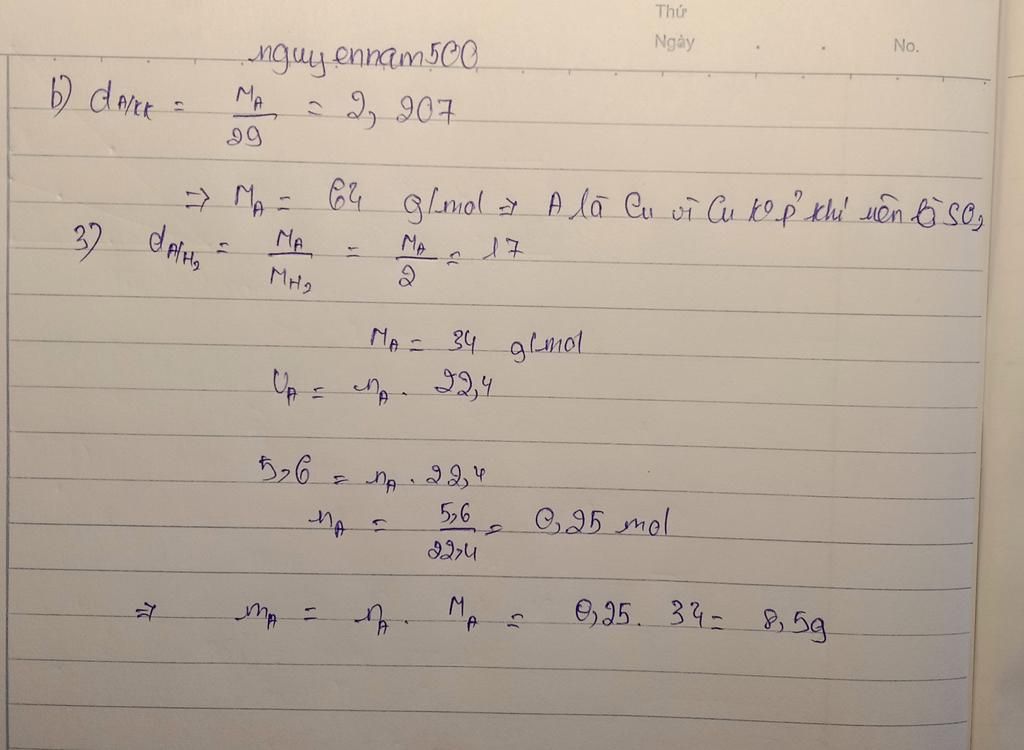 Thứ
Ngày . . No.
nguyennam500
b) dA/KK = MA/29 = 2,207
⇒ MA = 64 g/mol ⇒ A là Cu vì Cu ko p' khí nên là SO2
3) dA/H2 = MA/MH2 = MA/2 = 17
MA = 34 g/mol
VA = nA . 22,4
5,6 = nA . 22,4
nA = 5,6/22,4 = 0,25 mol
⇒ mA = nA . MA = 0,25 . 34 = 8,5g